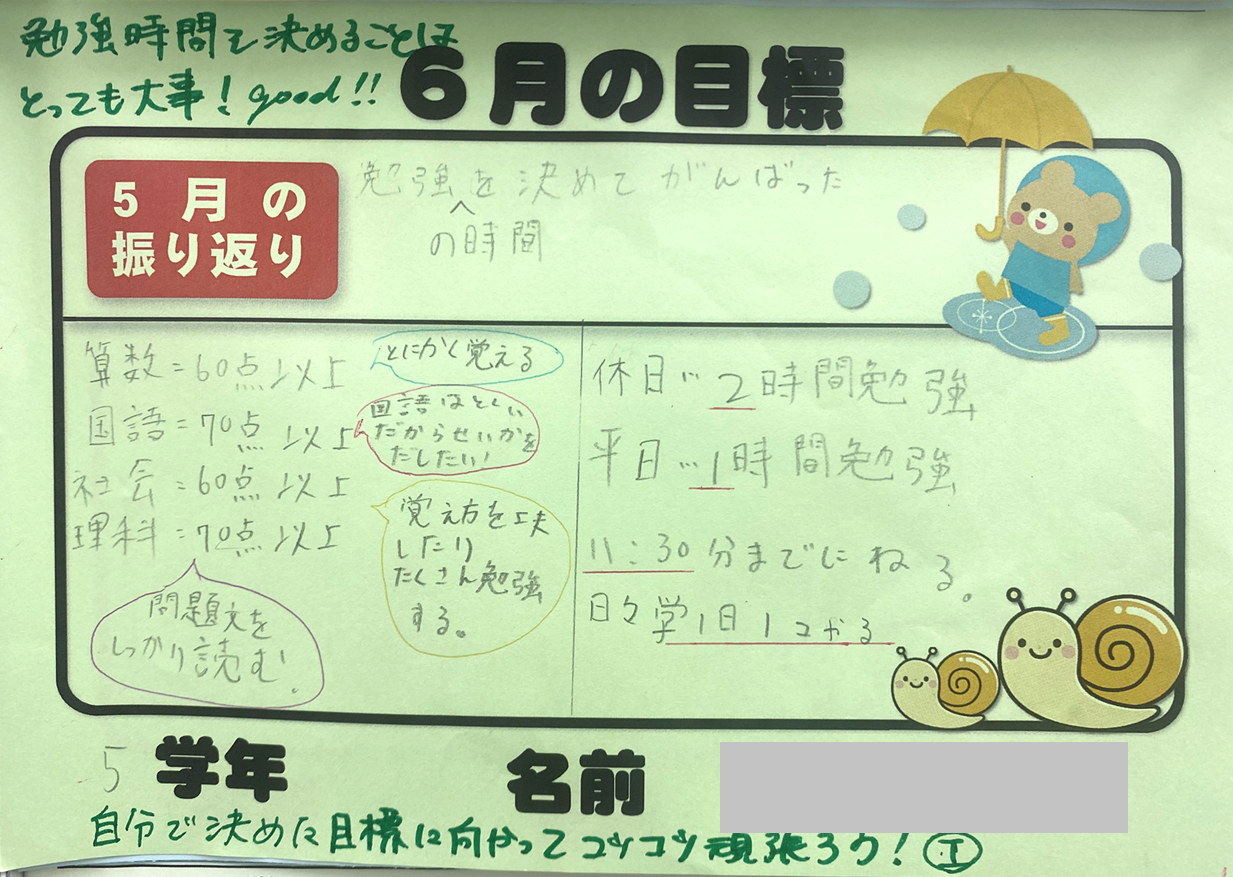 勉強時間を決めることは
とっても大事!good!!
6月の目標
5月の
振り返り
勉強を決めてがんばった
の時間
算数=60点以上
とにかく覚える
国語=70点以上
国語はとくい
だからせいかを
だしたい!
社会=60点以上
理科=70点以上
覚え方を工夫
したり
たくさん勉強
する。
問題文を
しっかり読む。
休日…2時間勉強
平日…1時間勉強
11:30分までにねる。
日々学1日1コやる
5 学年
名前
自分で決めた目標に向かってコツコツ頑張ろう!工